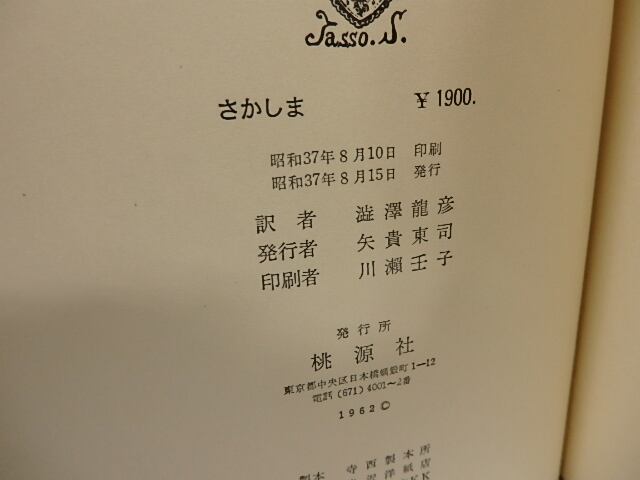 Tasso. S.
さかしま ¥ 1900.
昭和37年8月10日 印刷
昭和37年8月15日 発行
訳者 澁澤龍彦
発行者 矢貴東司
印刷者 川瀬壬子
発行所
桃源社
東京都中央区日本橋蛎殻町1—12
電話(671)4001〜2番
1962©
製本 寺西製本所
沢洋紙店